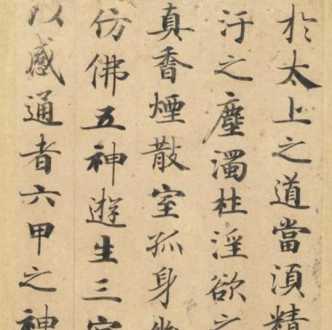 於太上之道當湏精
汙之塵濁柱淫欲之
真香煙散室孤身
仿佛五神遊生三宫
以感通者六甲之神